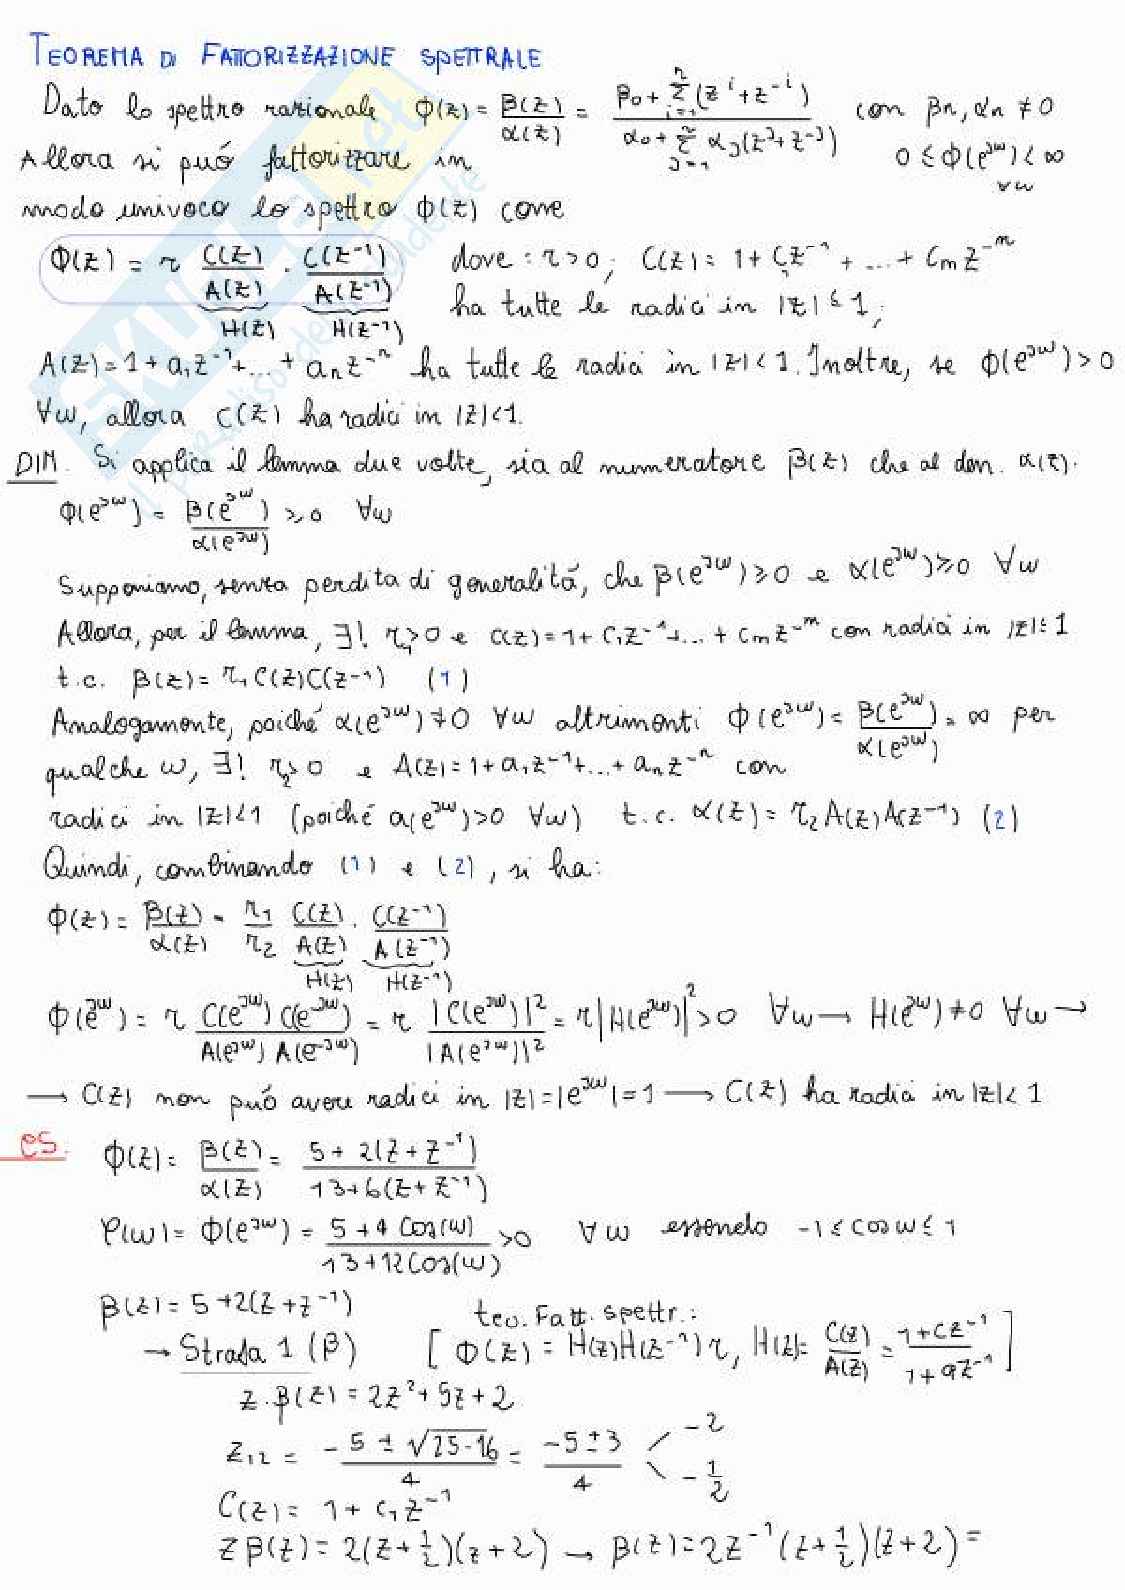 TEOREMA DI FATTORIZZAZIONE SPETTRALE
Dato lo spettro razionale ϕ(z) = β(z)/α(z) = (β₀ + Σ_{i=1}^{n} (z^i + z^{-i})) / (α₀ + Σ_{j=1}^{n} α_j (z^j + z^{-j})) con βn, αn ≠ 0
Allora si può fattorizzare in 0 ≤ ϕ(e^{jω}) < ∞ ∀ω
modo univoco lo spettro ϕ(z) come
ϕ(z) = r C(z)/A(z) · C(z⁻¹)/A(z⁻¹) dove: r>0; C(z) = 1 + C₁z⁻¹ + ... + Cm z^{-m}
H(z) H(z⁻¹) ha tutte le radici in |z| ≤ 1;
A(z) = 1 + a₁z⁻¹ + ... + an z^{-n} ha tutte le radici in |z| < 1. Inoltre, se ϕ(e^{jω}) > 0
∀ω, allora C(z) ha radici in |z|<1.
DIM. Si applica il lemma due volte, sia al numeratore β(z) che al den. α(z).
ϕ(e^{jω}) = β(e^{jω})/α(e^{jω}) ≥ 0 ∀ω
Supponiamo, senza perdita di generalità, che β(e^{jω}) ≥ 0 e α(e^{jω}) ≥ 0 ∀ω
Allora, per il lemma, ∃! r₁>0 e C(z) = 1 + C₁z⁻¹ + ... + Cm z^{-m} con radici in |z| ≤ 1
t.c. β(z) = r₁C(z)C(z⁻¹) (1)
Analogamente, poiché α(e^{jω}) ≠ 0 ∀ω altrimenti ϕ(e^{jω}) = β(e^{jω})/α(e^{jω}) = ∞ per
qualche ω, ∃! r₂>0 e A(z) = 1 + a₁z⁻¹ + ... + an z^{-n} con
radici in |z|<1 (poiché α(e^{jω}) > 0 ∀ω) t.c. α(z) = r₂A(z)A(z⁻¹) (2)
Quindi, combinando (1) e (2), si ha:
ϕ(z) = β(z)/α(z) = r₁/r₂ C(z)/A(z) · C(z⁻¹)/A(z⁻¹)
H(z) H(z⁻¹)
ϕ(e^{jω}) = r C(e^{jω}) C(e^{-jω}) / A(e^{jω}) A(e^{-jω}) = r |C(e^{jω})|²/|A(e^{jω})|² = r|H(e^{jω})|² > 0 ∀ω → H(e^{jω}) ≠ 0 ∀ω →
→ C(z) non può avere radici in |z| = |e^{jω}| = 1 → C(z) ha radici in |z| < 1
es. ϕ(z) = β(z)/α(z) = (5 + 2(z + z⁻¹)) / (13 + 6(z + z⁻¹))
φ(ω) = ϕ(e^{jω}) = (5 + 4 cos(ω)) / (13 + 12 cos(ω)) > 0 ∀ω essendo -1 ≤ cos ω ≤ 1
β(z) = 5 + 2(z + z⁻¹) teo. Fatt. spettr.:
→ Strada 1 (β) [ ϕ(z) = H(z)H(z⁻¹) r, H(z) = C(z)/A(z) = (1 + Cz⁻¹)/(1 + az⁻¹) ]
z·β(z) = 2z² + 5z + 2
z₁,₂ = (-5 ± √(25-16))/4 = (-5 ± 3)/4 -2 -1/2
C(z) = 1 + C₁z⁻¹
zβ(z) = 2(z + 1/2)(z + 2) → β(z) = 2z⁻¹(z + 1/2)(z + 2) =